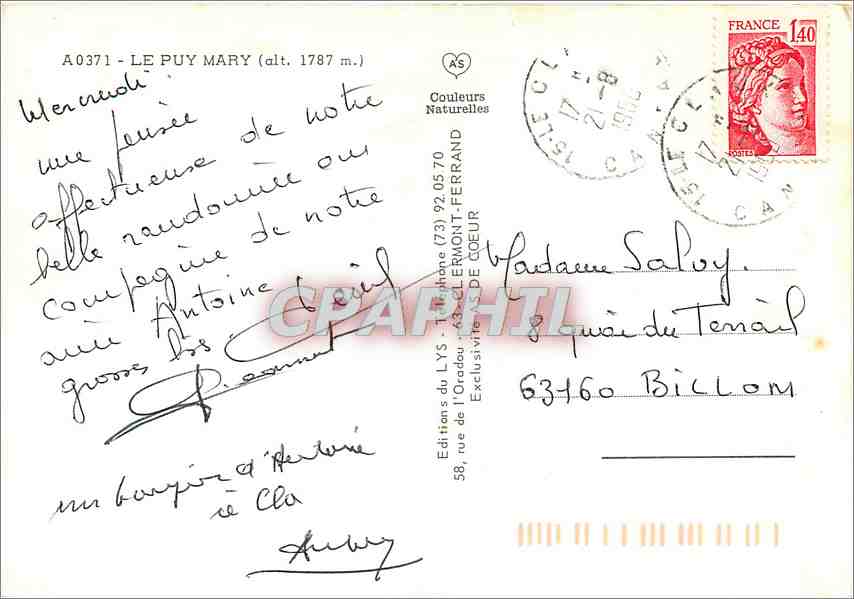 A0371 - LE PUY MARY (alt. 1787 m.)
AS
Couleurs
Naturelles
FRANCE
1,40
POSTES
15-LE CL
17 H
21-8
CANTAL
15-LE CL
17 H
CAN
Mercredi
une pensée
affectueuse de notre
belle randonnée en
compagnie de notre
ami Antoine
grosses bises
un bonjour d'Antoine
à Cla
Editions du LYS - Téléphone (73) 92.05 70
58, rue de l'Oradou - 63-CLERMONT-FERRAND
Exclusivité AS DE COEUR
CPAPHIL
Madame Salvy.
8 quai du Terrail
63160 BILLOM